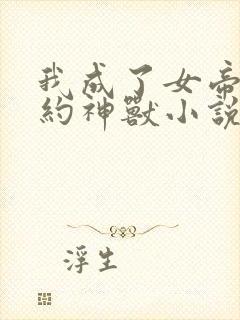 我成了女帝
約神獸小說
浮生